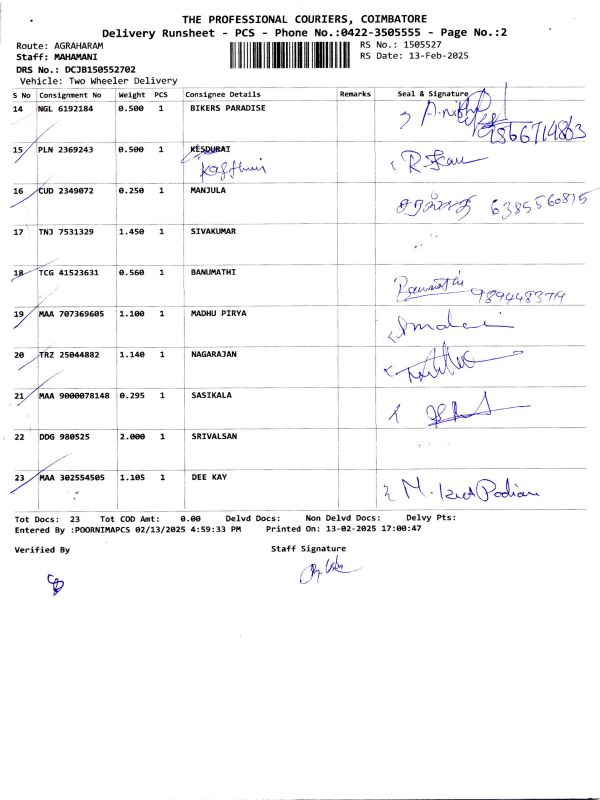 THE PROFESSIONAL COURIERS, COIMBATORE
Delivery Runsheet - PCS - Phone No.:0422-3505555 - Page No.:2
Route: AGRAHARAM RS No.: 1505527
Staff: MAHAMANI RS Date: 13-Feb-2025
DRS No.: DCJB150552702
Vehicle: Two Wheeler Delivery
S No Consignment No Weight PCS Consignee Details Remarks Seal & Signature
14 NGL 6192184 0.500 1 BIKERS PARADISE
9566714863
15 PLN 2369243 0.500 1 KESDURAI
R.
16 CUD 2349072 0.250 1 MANJULA
6385560815
17 TNJ 7531329 1.450 1 SIVAKUMAR
18 TCG 41523631 0.560 1 BANUMATHI
989448379
19 MAA 707369605 1.100 1 MADHU PIRYA
20 TRZ 25044882 1.140 1 NAGARAJAN
21 MAA 9000078148 0.295 1 SASIKALA
22 DDG 980525 2.000 1 SRIVALSAN
23 MAA 302554505 1.105 1 DEE KAY
M.
Tot Docs: 23 Tot COD Amt: 0.00 Delvd Docs: Non Delvd Docs: Delvy Pts:
Entered By :POORNIMAPCS 02/13/2025 4:59:33 PM Printed On: 13-02-2025 17:00:47
Verified By Staff Signature